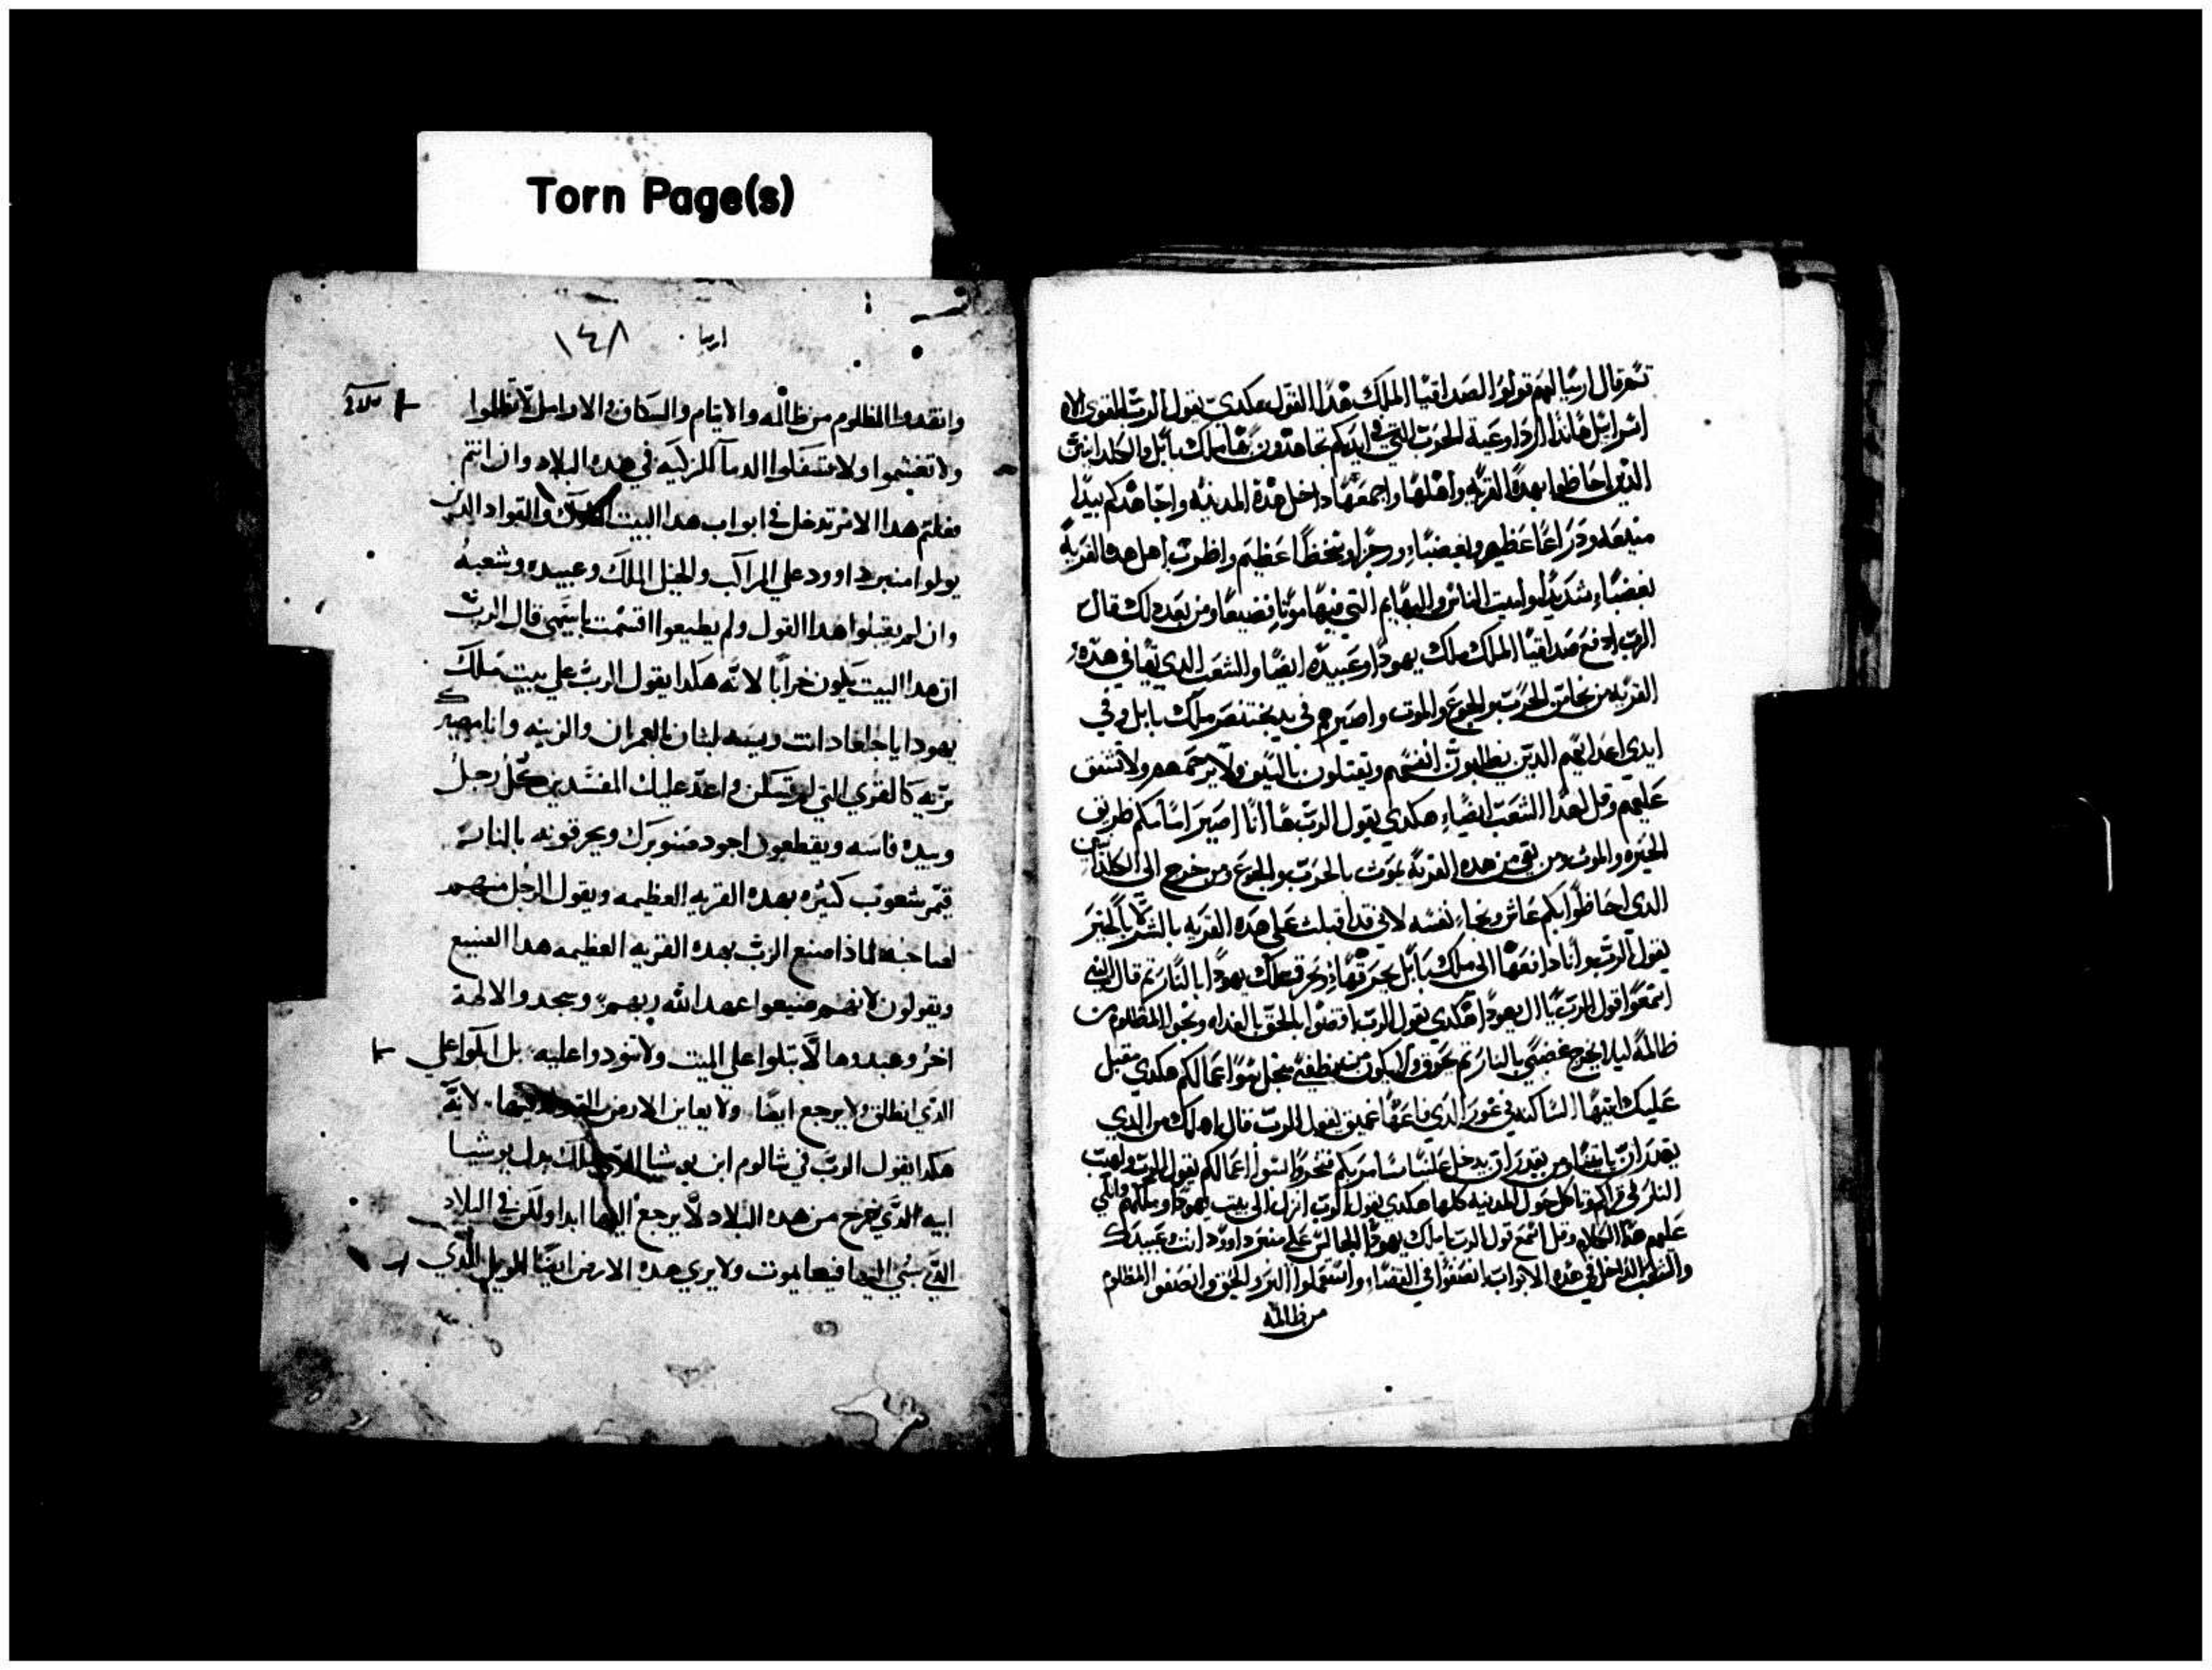 Torn Page(s)
ثم قال ارميا لهم قولوا لصداقيا الملك هدا القول هكدى يقول الرب القوى الاه
اسرائيل هاندا ارد اوعية الحرب التي في ايديكم تجاهدون بها ملك بابل والكلدانيين
الدين احاطوا بهده القرية واهلها واجمعها داخل هده المدينه واجاهدكم بيد
ودراعا عظيم وبغضباء ورجزا وسخطا عظيم واظرب اهل هده القرية
بغضباء شديدا واميت الناس والبهايم التي فيها موتا فضيعا ومن بعد دلك قال
الرب ادفع صداقيا الملك ملك يهودا وعبيده ايضا والشعب الدي بقا في هده
القريه من الحرب والجوع والموت واصيرهم في يد بختنصر ملك بابل وفي
ايدي اعدايهم الدين يطلبون انفسهم ويقتلون بالسيف ولا يرحمهم ولا تشفق
عليهم وقل لهدا الشعب ايضاء هكدي يقول الرب ها انا اصير امامكم طريق
الخيره والموت ومن بقي من هده القرية يموت بالحرب والجوع ومن خرج الى الكلدانيين
الدي احاطوا بكم عاش ونجا نفسه لاني قد اقبلت على هده القريه بالشر لا بالخير
يقول الرب وانا دافعها الى ملك بابل يحرقها ملك يهودا بالنار ثم قال النبي
اسمعوا قول الرب يا ال يهودا هكدي يقول الرب اقضوا بالحق بالغداه ونجوا المظلوم من
ظالمه ليلا يخرج غضبي بالنار ثم يحرق ولا يكون من يطفي من اجل سوا اعمالكم هكدي مقبل
عليك ايتها الساكنه في غور الدي قاعها عميق يقول الرب قال اهلك من الدي
يقدر ان ياتينا ومن يقدر ان يدخل علينا اعمالكم يقول الرب والهب
النار في قراكم وتاكل حول المدينه كلها هكدي يقول الرب انزل الى بيت يهودا وملكهم واتلي
عليهم هدا الكلام وقل اسمع قول الرب يا ملك يهودا الجالس على منبر داوود انت وعبيدك
والشعب الداخل في هده الابواب انصفوا في القضاء واستعملوا البر والحق وانصفوا المظلوم
من ظالمه
ارميا ١٤٨
وانقدوا المظلوم من ظالمه والايتام والسكان والارامل لا تظلموا
ولا تغشموا ولا تسفكوا الدما الزكيه في هده البلاد وان انتم
فعلتم هدا الامر تدخل في ابواب هدا البيت والقواد الدين
يولوا منبر داوود على المراكب والخيل الملك وعبيده وشعبه
وان لم يقبلوا هدا القول ولم يطيعوا اقسمت باسمي قال الرب
ان هدا البيت يكون خرابا لانه هكدا يقول الرب على بيت ملك
يهودا يا جلعاد انت وبيته لبنان بالعمران والزينه وانا مصيرك
بريه كالقرى التي لم تسكن واعد عليك المفسدين كل رجل
وبيده فاسه ويقطعون اجود صنوبرك ويحرقونه بالنار
فتمر شعوب كثيره بهده القريه العظيمه ويقول الرجل منهم
لصاحبه لماذا صنع الرب بهده القريه العظيمه هدا الصنيع
ويقولون لانهم ضيعوا عهد الله ربهم وسجدوا لالهة
اخر وعبدوها لا تبكوا على الميت ولا تنودوا عليه بل ابكوا على
الدي انطلق ولا يرجع ايضا ولا يعاين الارض لانه
هكدا يقول الرب في شالوم ابن يوشيا ملك بدل يوشيا
ابيه الدي خرج من هده البلاد لا يرجع اليها ابدا ولكن في البلاد
التي سبي اليها فيها يموت ولا يرى هده الارض ايضا الويل للدي